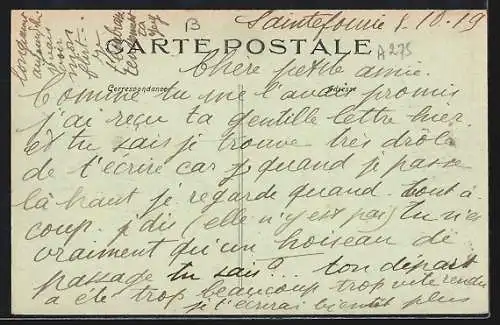 Saintefourie 8.10.19
B
A 275
CARTE POSTALE
Correspondance
Adresse
Chère petite amie.
Comme tu me l'avais promis
j'ai reçu ta gentille lettre hier
et tu sais je trouve très drôle
de t'écrire car quand je passe
là haut je regarde quand tout à
coup. j'dis (elle n'y est pas) Tu n'es
vraiment qu'un hoiseau de
passage tu sais ... ton départ
a été trop beaucoup trop vite rendu
je t'écrirai bientôt plus
longuement
aujourd'hui
mais